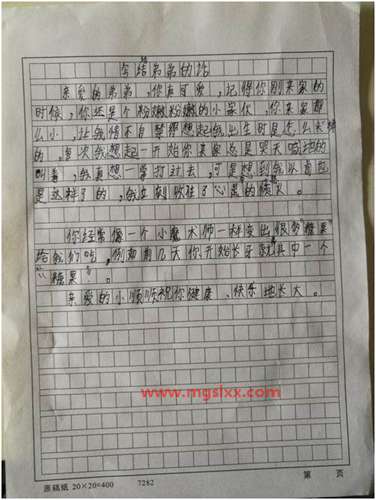 写给弟弟的话
亲爱的弟弟，你真可爱，记得你刚来家的
时候，你还是个粉嫩粉嫩的小家伙，你来那
么小，让我情不自禁想起我出生时是这么大
的，每次我想起一开始你来家总是哭天喊地的
叫着，我真想一掌打过去，可是想到我以前也
是这样了的，我立刻收住了心里的怒火。
你经常像一个小魔术师一样变出很多“糖果”
给我们吃，例如前几天你开始长牙就其中一个
“糖果”。
亲爱的小顺顺祝你健康、快乐地长大。
www.mgslxx.com
原稿纸 20×20=400 7282 第 页